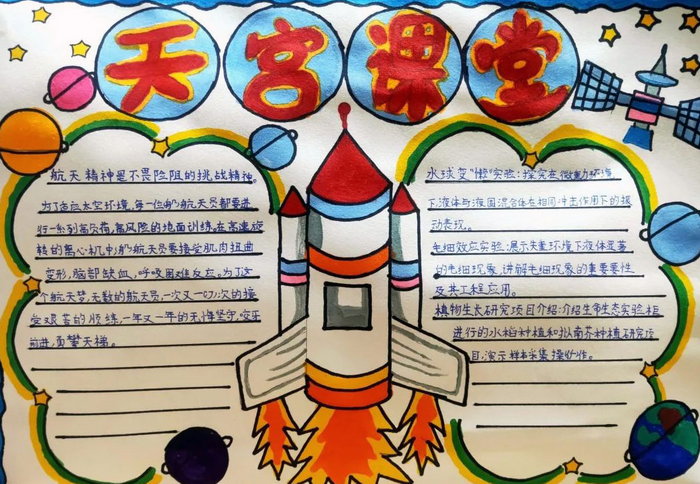 天宫课堂
航天精神是不畏险阻的挑战精神。
为了适应太空环境,每一位航天员都要进
行一系列高负荷,高风险的地面训练,在高速旋
转的离心机中,航天员要接受肌肉扭曲
变形,脑部缺血,呼吸困难反应。为了这
个航天梦,无数的航天员,一次又一次的接
受艰苦的训练,一年又一年的无悔坚守,欢乐
前进,勇攀天梯。
水球变“懒”实验:探究在微重力环境
下液体与液固混合体在相同冲击作用下的振
动表现。
毛细效应实验:展示失重环境下液体显著
的毛细现象,讲解毛细现象的重要性
及其工程应用。
植物生长研究项目介绍:介绍生命生态实验柜
进行的水稻种植和拟南芥种植研究项
目,演示样本采集操作。